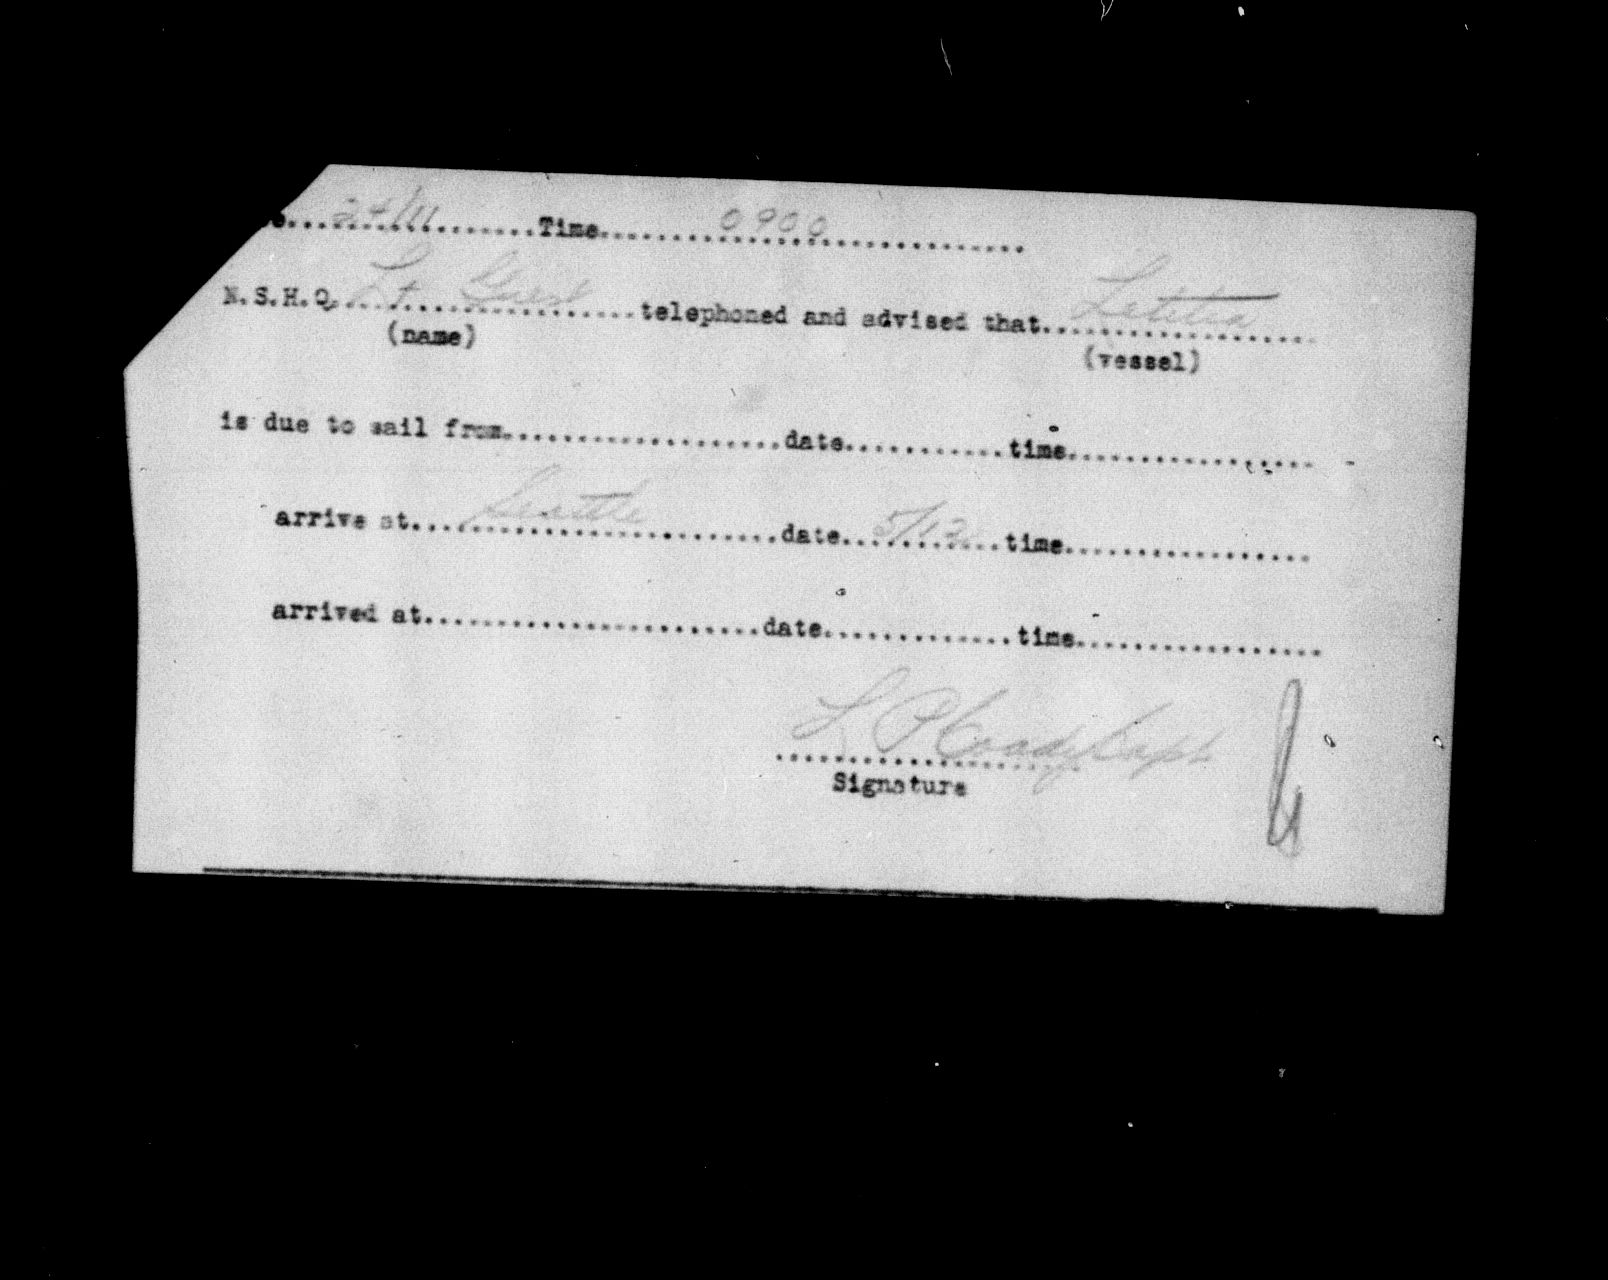 e...24/11................Time.....0900..............................
N.S.H.Q. Lt. Guest....................telephoned and advised that..Letitia..................
(name) (vessel)
is due to sail from...................date...........time.................
arrive at...Seattle......................date..5/12.........time.................
arrived at.......................date.............time.................
L P Coady Capt
Signature